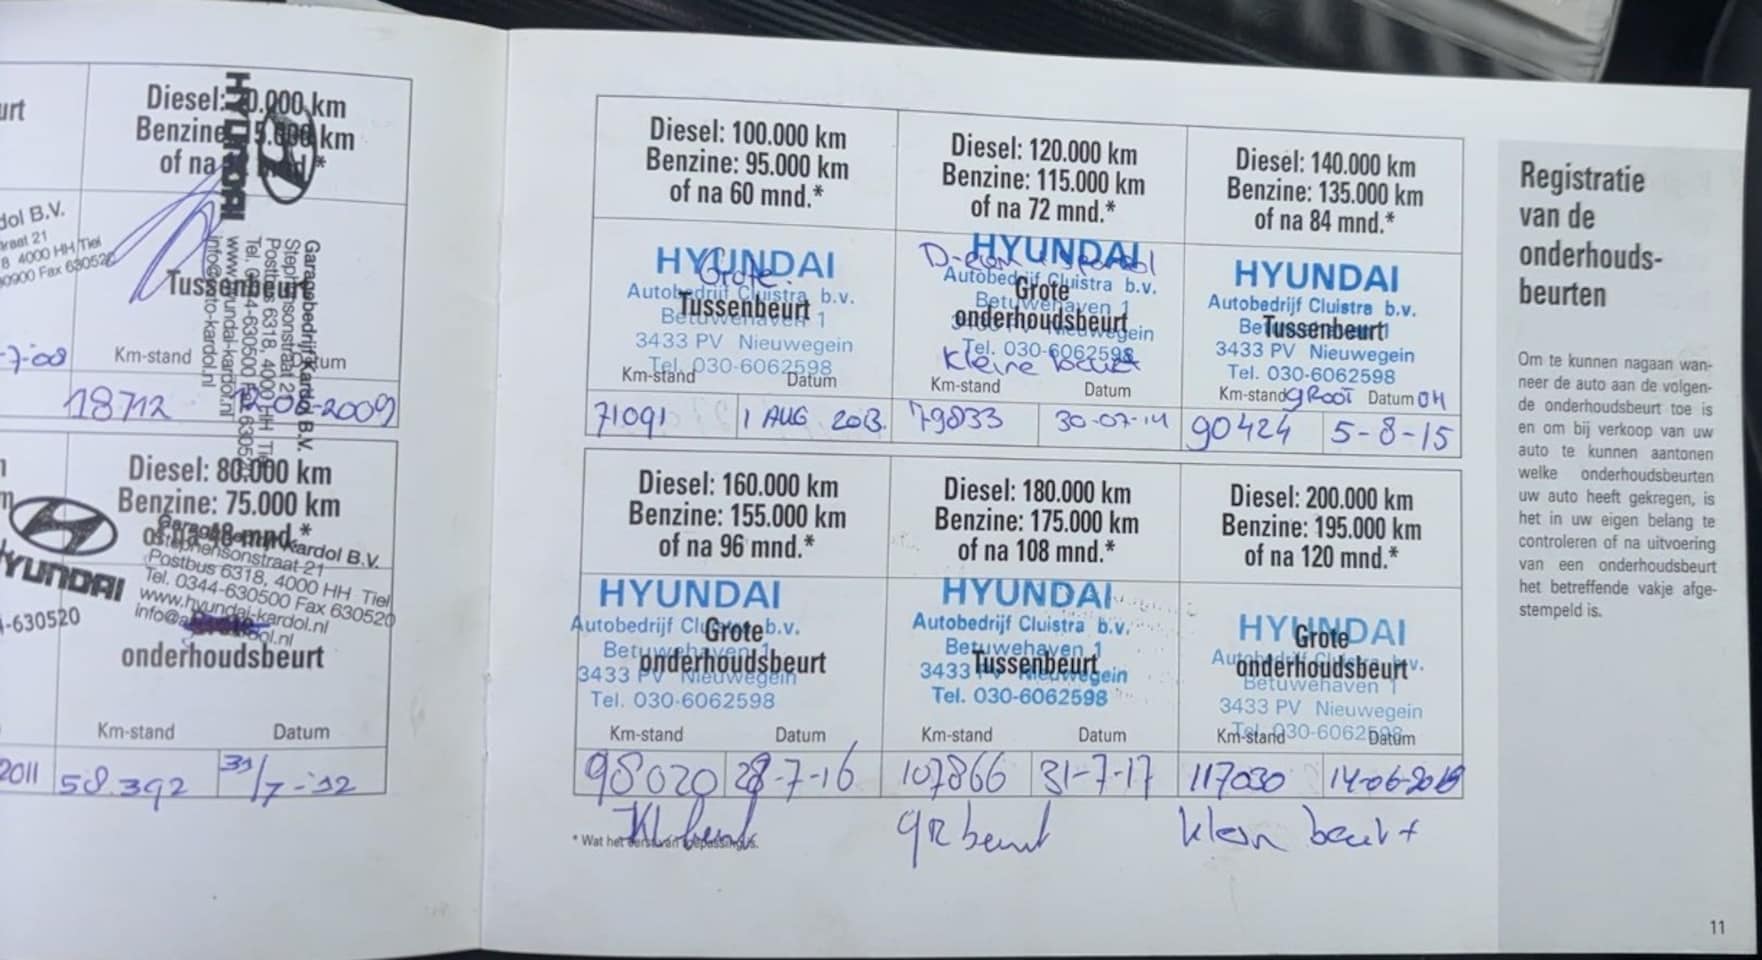 urt
Diesel: 0.000 km
Benzine 5.000 km
of na mnd.*
HYUNDAI
dol B.V.
raat 21
8 4000 HH Tiel
0900 Fax 630520
Tussenbeurt
Garagebedrijf Kardol B.V.
Stephensonstraat 21
Postbus 6318, 4000 HH Tiel
Tel. 0344-630500 Fax 630520
www.hyundai-kardol.nl
info@auto-kardol.nl
Km-stand Datum
-7-08 18712 -06-2009
Diesel: 80.000 km
Benzine: 75.000 km
of na 48 mnd.*
HYUNDAI
Garagebedrijf Kardol B.V.
Stephensonstraat 21
Postbus 6318, 4000 HH Tiel
Tel. 0344-630500 Fax 630520
www.hyundai-kardol.nl
4-630520
onderhoudsbeurt
Km-stand Datum
2011 58.392 31/7-'12
Diesel: 100.000 km
Benzine: 95.000 km
of na 60 mnd.*
HYUNDAI
Grote
Autobedrijf Cluistra b.v.
Tussenbeurt
Betuwehaven 1
3433 PV Nieuwegein
Tel. 030-6062598
Km-stand Datum
71091 1 AUG 2013.
Diesel: 120.000 km
Benzine: 115.000 km
of na 72 mnd.*
HYUNDAI
Autobedrijf Cluistra b.v.
Grote
Betuwehaven 1
onderhoudsbeurt
3433 PV Nieuwegein
Tel. 030-6062598
Kleine beurt
Km-stand Datum
79833 30-07-14
Diesel: 140.000 km
Benzine: 135.000 km
of na 84 mnd.*
HYUNDAI
Autobedrijf Cluistra b.v.
Betuwehaven 1
Tussenbeurt
3433 PV Nieuwegein
Tel. 030-6062598
Km-stand GROOT Datum OH
90424 5-8-15
Diesel: 160.000 km
Benzine: 155.000 km
of na 96 mnd.*
HYUNDAI
Autobedrijf Cluistra b.v.
Grote
Betuwehaven 1
onderhoudsbeurt
3433 PV Nieuwegein
Tel. 030-6062598
Km-stand Datum
98020 28-7-16
Kl beurt
Diesel: 180.000 km
Benzine: 175.000 km
of na 108 mnd.*
HYUNDAI
Autobedrijf Cluistra b.v.
Betuwehaven 1
Tussenbeurt
3433 PV Nieuwegein
Tel. 030-6062598
Km-stand Datum
107866 31-7-17
gr beurt
Diesel: 200.000 km
Benzine: 195.000 km
of na 120 mnd.*
HYUNDAI
Grote
Autobedrijf Cluistra b.v.
onderhoudsbeurt
Betuwehaven 1
3433 PV Nieuwegein
Tel. 030-6062598
Km-stand Datum
117030 14-06-2018
klein beurt +
* Wat het eerst van toepassing is.
Registratie
van de
onderhouds-
beurten
Om te kunnen nagaan wan-
neer de auto aan de volgen-
de onderhoudsbeurt toe is
en om bij verkoop van uw
auto te kunnen aantonen
welke onderhoudsbeurten
uw auto heeft gekregen, is
het in uw eigen belang te
controleren of na uitvoering
van een onderhoudsbeurt
het betreffende vakje afge-
stempeld is.
11